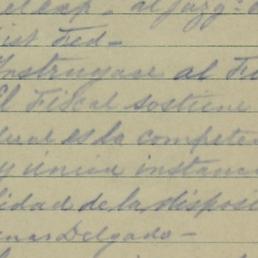 al juzg: 
Fed-
Instruyase al
El Fiscal sostiene
es la compete
y única instanc
lidad de la disposi
Delgado-